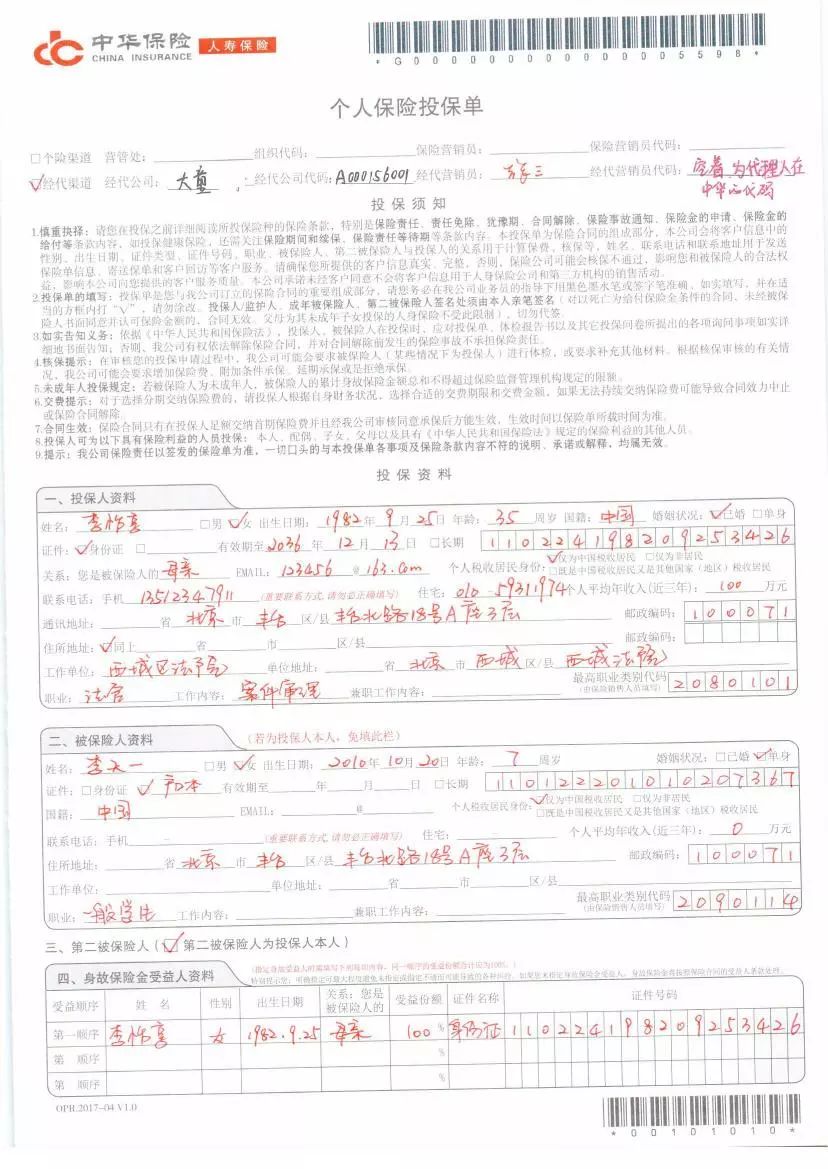 中华保险 人寿保险
CHINA INSURANCE
*G0000000000005598*
个人保险投保单
□个险渠道 营管处： 组织代码： 保险营销员： 保险营销员代码：
☑经代渠道 经代公司：大童 经代公司代码：A000156001 经代营销员： 经代营销员代码：空着，为代理人在中华的代码
投保须知
1.慎重抉择：请您在投保之前详细阅读所投保险种的保险条款，特别是保险责任、责任免除、犹豫期、合同解除、保险事故通知、保险金的申请、保险金的
给付等条款内容，如投保健康保险，还需关注保险期间和续保、保险责任等待期等条款内容。本投保单为保险合同的组成部分，本公司会将客户信息中的
性别、出生日期、证件类型、证件号码、职业、被保险人、第二被保险人与投保人的关系用于计算保费、核保等，姓名、联系电话和联系地址用于发送
保险单信息、寄送保单和客户回访等客户服务。请确保您所提供的客户信息真实、完整，否则，保险公司可能会核保不通过，影响您和被保险人的合法权
益，影响本公司向您提供的客户服务质量。本公司承诺未经客户同意不会将客户信息用于人身保险公司和第三方机构的销售活动。
2.投保单的填写：投保单是您与我公司订立的保险合同的重要组成部分，请您务必在我公司业务员的指导下用黑色墨水笔或签字笔准确、如实填写，并在适
当的方框内打“√”，请勿涂改。投保人/监护人、成年被保险人、第二被保险人签名处须由本人亲笔签名（对以死亡为给付保险金条件的合同，未经被保
险人书面同意并认可保险金额的，合同无效。父母为其未成年子女投保的人身保险不受此限制），切勿代签。
3.如实告知义务：依据《中华人民共和国保险法》，投保人、被保险人在投保时，应对投保单、体检报告书以及其它投保问卷所提出的各项询问事项如实详
细地书面告知；否则，我公司有权依法解除保险合同，并对合同解除前发生的保险事故不承担保险责任。
4.核保提示：在审核您的投保申请过程中，我公司可能会要求被保险人（某些情况下为投保人）进行体检，或要求补充其他材料。根据核保审核的有关情
况，我公司可能会要求增加保险费、附加条件承保、延期承保或是拒绝承保。
5.未成年人投保规定：若被保险人为未成年人，被保险人的累计身故保险金额总和不得超过保险监督管理机构规定的限额。
6.交费提示：对于选择分期交纳保险费的，请投保人根据自身财务状况，选择合适的交费期限和交费金额，如果无法持续交纳保险费可能导致合同效力中止
或保险合同解除。
7.合同生效：保险合同只有在投保人足额交纳首期保险费并且经我公司审核同意承保后方能生效，生效时间以保险单所载时间为准。
8.投保人可为以下具有保险利益的人员投保：本人、配偶、子女、父母以及具有《中华人民共和国保险法》规定的保险利益的其他人员。
9.提示：我公司保险责任以签发的保险单为准，一切口头的与本投保单各事项及保险条款内容不符的说明、承诺或解释，均属无效。
投保资料
一、投保人资料
姓名：李怡喜 □男 ☑女 出生日期：1982年9月25日 年龄：35周岁 国籍：中国 婚姻状况：☑已婚 □单身
证件：☑身份证 □ 有效期至2036年12月13日 □长期 110224198209253426
关系：您是被保险人的母亲 EMAIL：123456@163.com 个人税收居民身份：☑仅为中国税收居民 □仅为非居民
□既是中国税收居民又是其他国家（地区）税收居民
联系电话：手机 13512347911 (重要联系方式,请务必正确填写) 住宅：010-59311974 个人平均年收入(近三年)：100 万元
通讯地址： 省北京市丰台区/县丰台北路18号A座3层 邮政编码：100071
住所地址：☑同上 省 市 区/县 邮政编码：
工作单位：西城区法院 单位地址： 省北京市西城区/县西城法院
职业：法官 工作内容：案件审理 兼职工作内容： 最高职业类别代码(由保险销售人员填写) 2080101
二、被保险人资料 (若为投保人本人，免填此栏)
姓名：李天一 □男 ☑女 出生日期：2010年10月20日 年龄：7周岁 婚姻状况：□已婚 ☑单身
证件：□身份证 ☑户口本 有效期至 年 月 日 □长期 110122201010207367
国籍：中国 EMAIL： @ 个人税收居民身份：☑仅为中国税收居民 □仅为非居民
□既是中国税收居民又是其他国家（地区）税收居民
联系电话：手机 (重要联系方式,请务必正确填写) 住宅： 个人平均年收入(近三年)：0 万元
住所地址： 省北京市丰台区/县丰台北路18号A座3层 邮政编码：100071
工作单位： 单位地址： 省 市 区/县
职业：一般学生 工作内容： 兼职工作内容： 最高职业类别代码(由保险销售人员填写) 2090114
三、第二被保险人（☑第二被保险人为投保人本人）
四、身故保险金受益人资料
受益顺序 姓名 性别 出生日期 关系：您是被保险人的 受益份额 证件名称 证件号码
第一顺序 李怡喜 女 1982.9.25 母亲 100% 身份证 110224198209253426
第 顺序 %
第 顺序 %
OPR.2017-04 V1.0
*0010101*